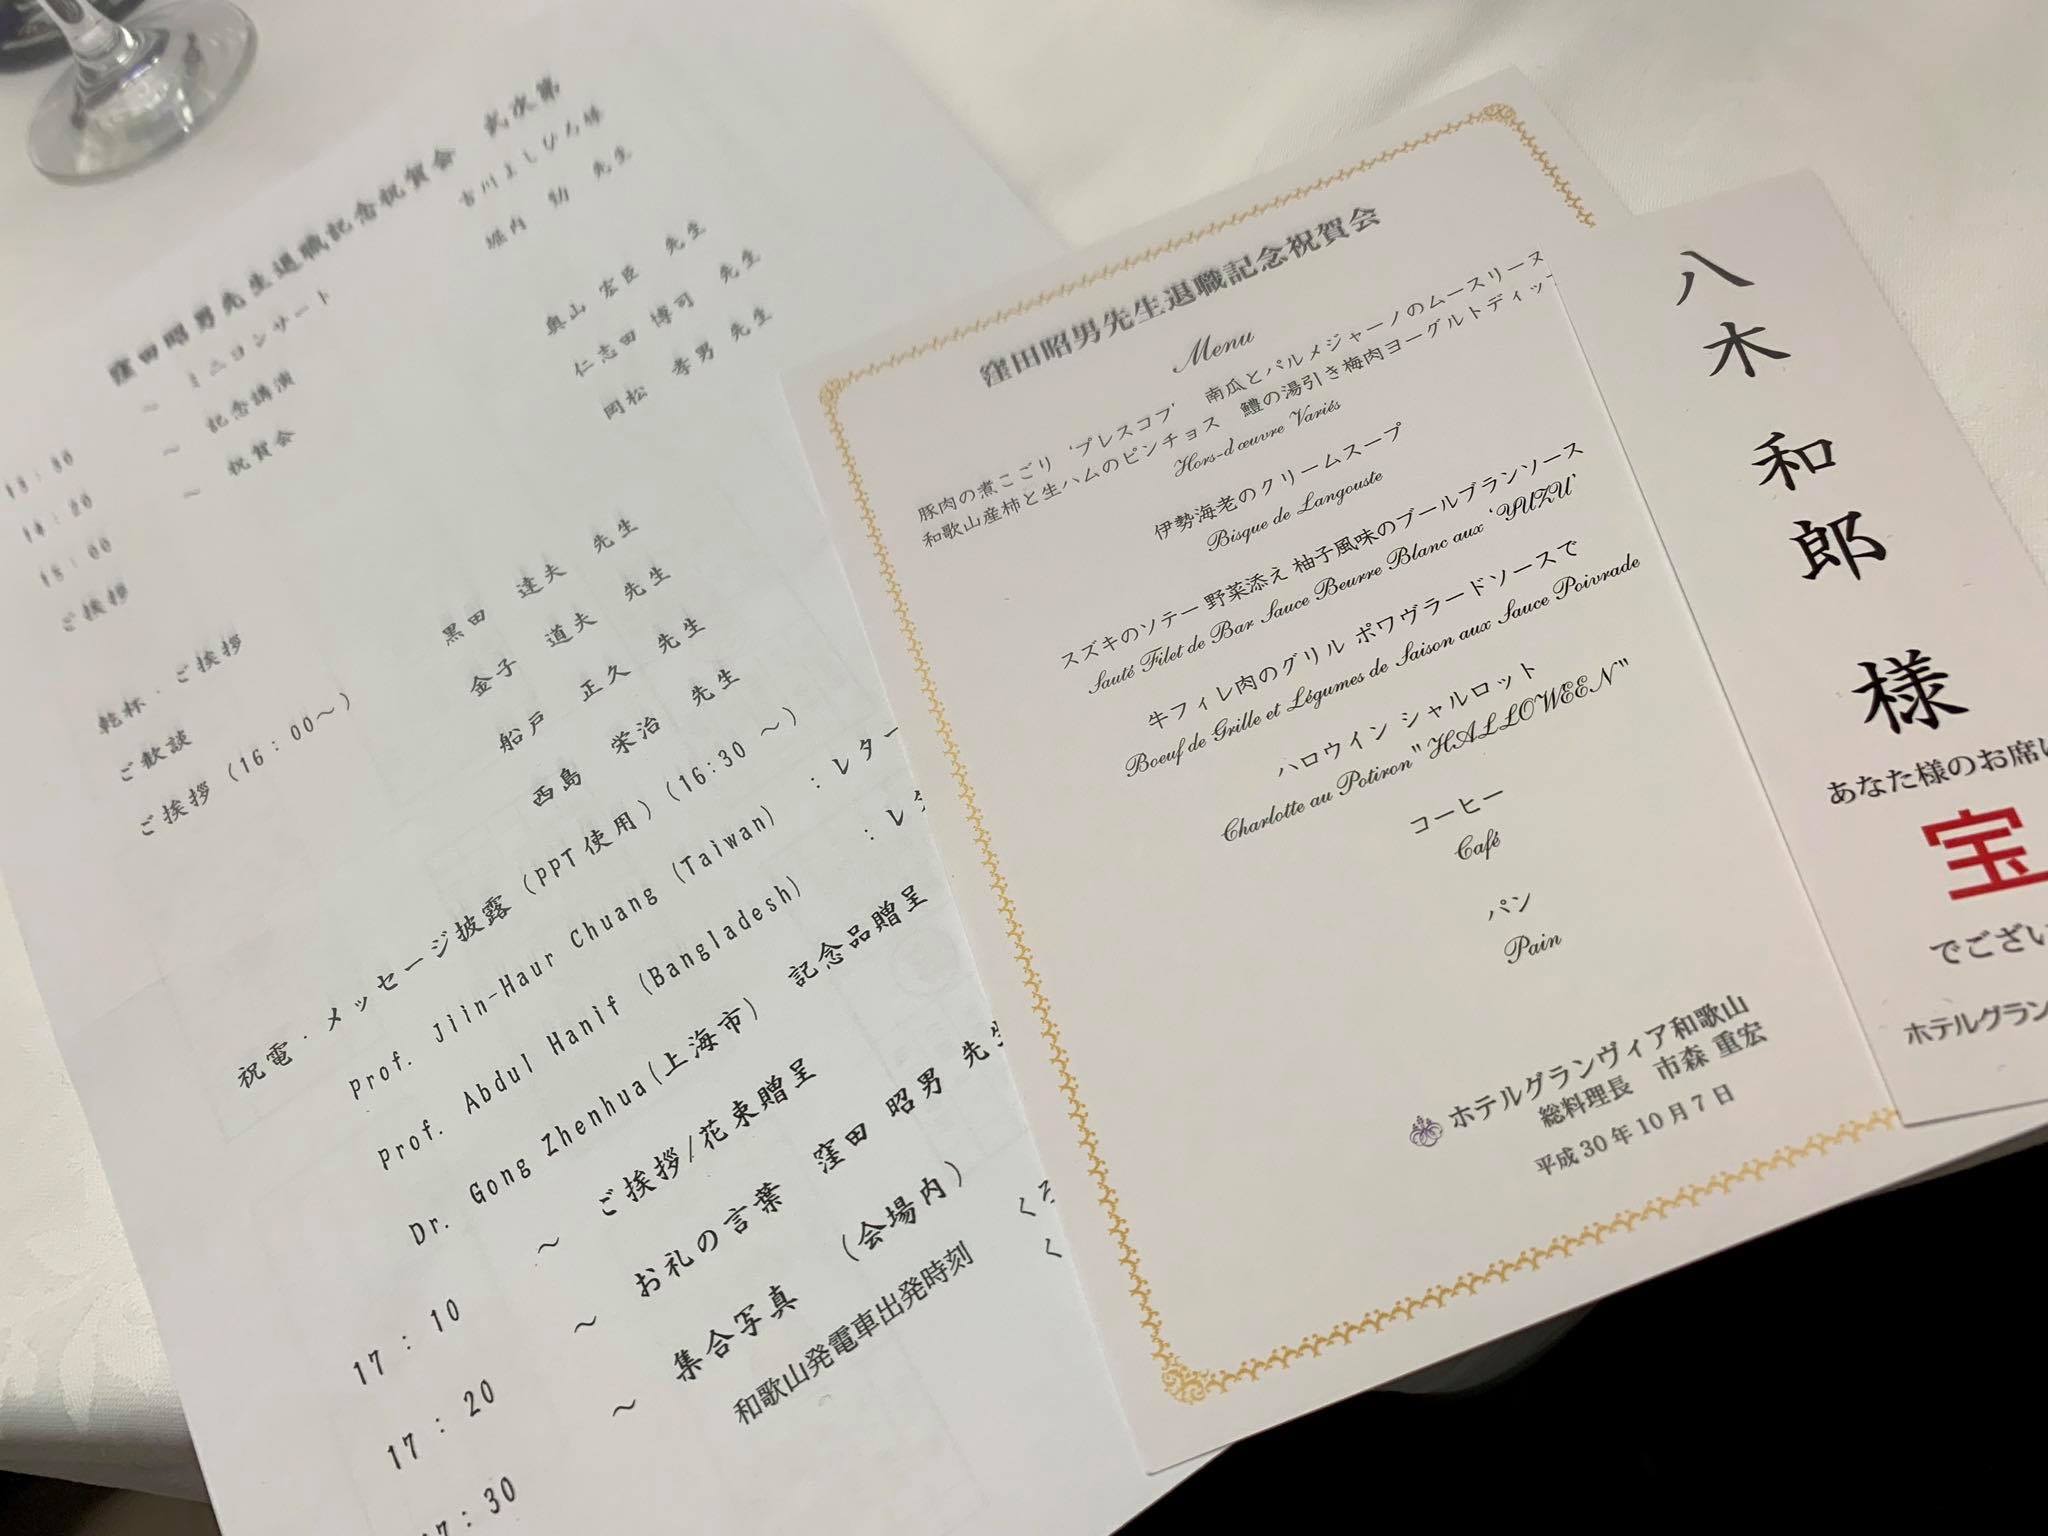 窪田昭男先生退職記念祝賀会 式次第
13:30 ～ ミニコンサート 古川よしひろ様
14:20 ～ 記念講演 堀内 勁 先生
15:00 ～ 祝賀会
ご挨拶 奥山 宏臣 先生
仁志田 博司 先生
岡松 孝男 先生
乾杯・ご挨拶 黒田 達夫 先生
ご歓談
ご挨拶 (16:00～) 金子 道夫 先生
船戸 正久 先生
西島 栄治 先生
祝電・メッセージ披露 (PPT使用) (16:30 ～)
Prof. Jiin-Haur Chuang (Taiwan) :レター
Prof. Abdul Hanif (Bangladesh) :レタ
Dr. Gong Zhenhua(上海市) 記念品贈呈
17:10 ～ ご挨拶/花束贈呈
17:20 ～ お礼の言葉 窪田 昭男 先生
17:30 ～ 集合写真 (会場内)
和歌山発電車出発時刻
窪田昭男先生退職記念祝賀会
Menu
豚肉の煮こごり ‘プレスコフ’ 南瓜とパルメジャーノのムースリーヌ
和歌山産柿と生ハムのピンチョス 鱧の湯引き梅肉ヨーグルトディップ
Hors-d œuvre Variés
伊勢海老のクリームスープ
Bisque de Langouste
スズキのソテー 野菜添え 柚子風味のブールブランソース
Sauté Filet de Bar Sauce Beurre Blanc aux ‘YUZU’
牛フィレ肉のグリル ポワヴラードソースで
Boeuf de Grille et Légumes de Saison aux Sauce Poivrade
ハロウイン シャルロット
Charlotte au Potiron "HALLOWEEN"
コーヒー
Café
パン
Pain
ホテルグランヴィア和歌山
総料理長 市森 重宏
平成30年10月7日
八木 和郎 様
あなた様のお席は
宝
でござい
ホテルグラン